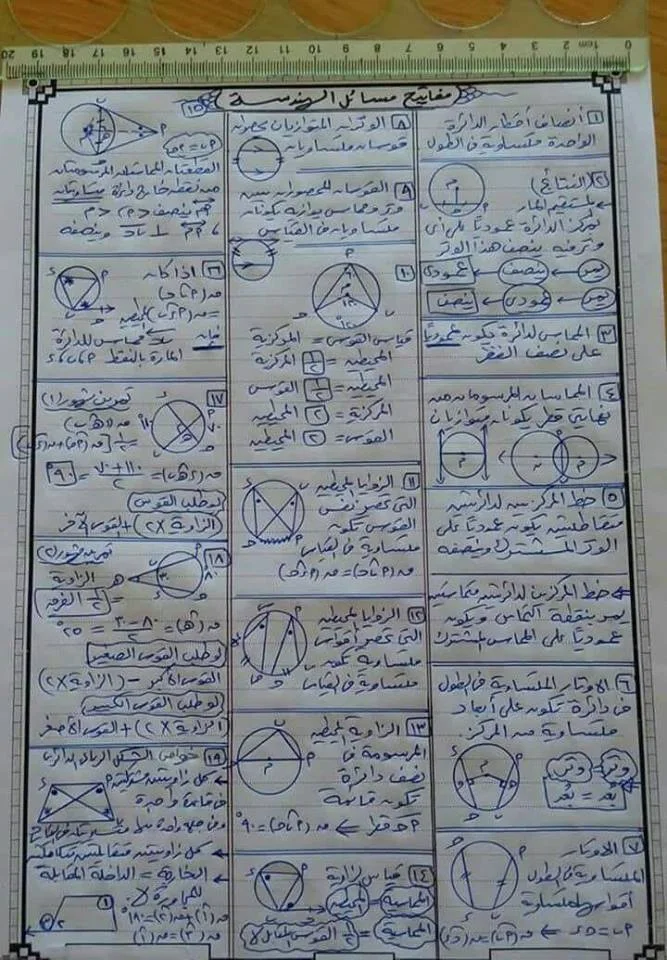 مفاتيح مسائل الهندسة
١ أنصاف أقطار الدائرة
الواحدة متساوية في الطول
٢ (النتائج)
المستقيم المار
بمركز الدائرة عموديًا على أى
وتر فيه ينصف هذا الوتر
يمر ← ينصف ← عمودى
يمر ← عمودى ← ينصف
٣ المماس لدائرة يكون عموديًا
على نصف القطر
٤ المماسان المرسومان من
نهايتي قطر يكونان متوازيان
٥ خط المركزين لدائرتين
متقاطعتين يكون عموديًا على
الوتر المشترك وينصفه
خط المركزين لدائرتين متماستين
يمر بنقطة التماس ويكون
عموديًا على المماس المشترك
٦ الأوتار المتساوية في الطول
فى دائرة تكون على أبعاد
متساوية من المركز.
وتر = وتر
بُعد = بُعد
٧ الأوتار
المتساوية فى الطول
أقواسها متساوية
٨ الوتران المتوازيان يحصران
قوسان متساويان
٩ القوسان المحصوران بين
وتر ومماس يوازيه يكونان
متساويان فى القياس
١٠
قياس القوس = المركزية
المحيطية = ١/٢ المركزية
المحيطية = ١/٢ القوس
المركزية = ٢ المحيطية
القوس = ٢ المحيطية
١١ الزوايا المحيطية
التى تحصر نفس
القوس تكون
متساوية فى القياس
١٢ الزوايا المحيطية
التى تحصر أقواس
متساوية تكون
متساوية فى القياس
١٣ الزاوية المحيطية
المرسومة فى
نصف دائرة
تكون قائمة
١٤ قياس زاوية
المماسية = المحيطية
المماسية = ١/٢ القوس المقابل لها
١٥
القطعتان المماستان المرسومتان
من نقطة خارج دائرة متساويتان
١٦ اذا كان
فإن مماس للدائرة
المارة بالنقط
١٧ تمرين مشهور (١)
= ١١٠ + ٧٠ / ٢ = ٩٠°
لو طلب القوس
الزاوية × ٢ - القوس الآخر
١٨ تمرين مشهور (٢)
الزاوية
= ١/٢ الفرق
= ٨٠ - ٣٠ / ٢ = ٢٥°
لو طلب القوس الصغير
القوس الأكبر - (الزاوية × ٢)
لو طلب القوس الكبير
(الزاوية × ٢) + القوس الأصغر
١٩ خواص الشكل الرباعى الدائرى
كل زاويتين مشتركتين
فى قاعدة واحدة
وفى جهة واحدة
كل زاويتين متقابلتين متكاملتين
الخارجة = الداخلة المقابلة
للمجاورة لها